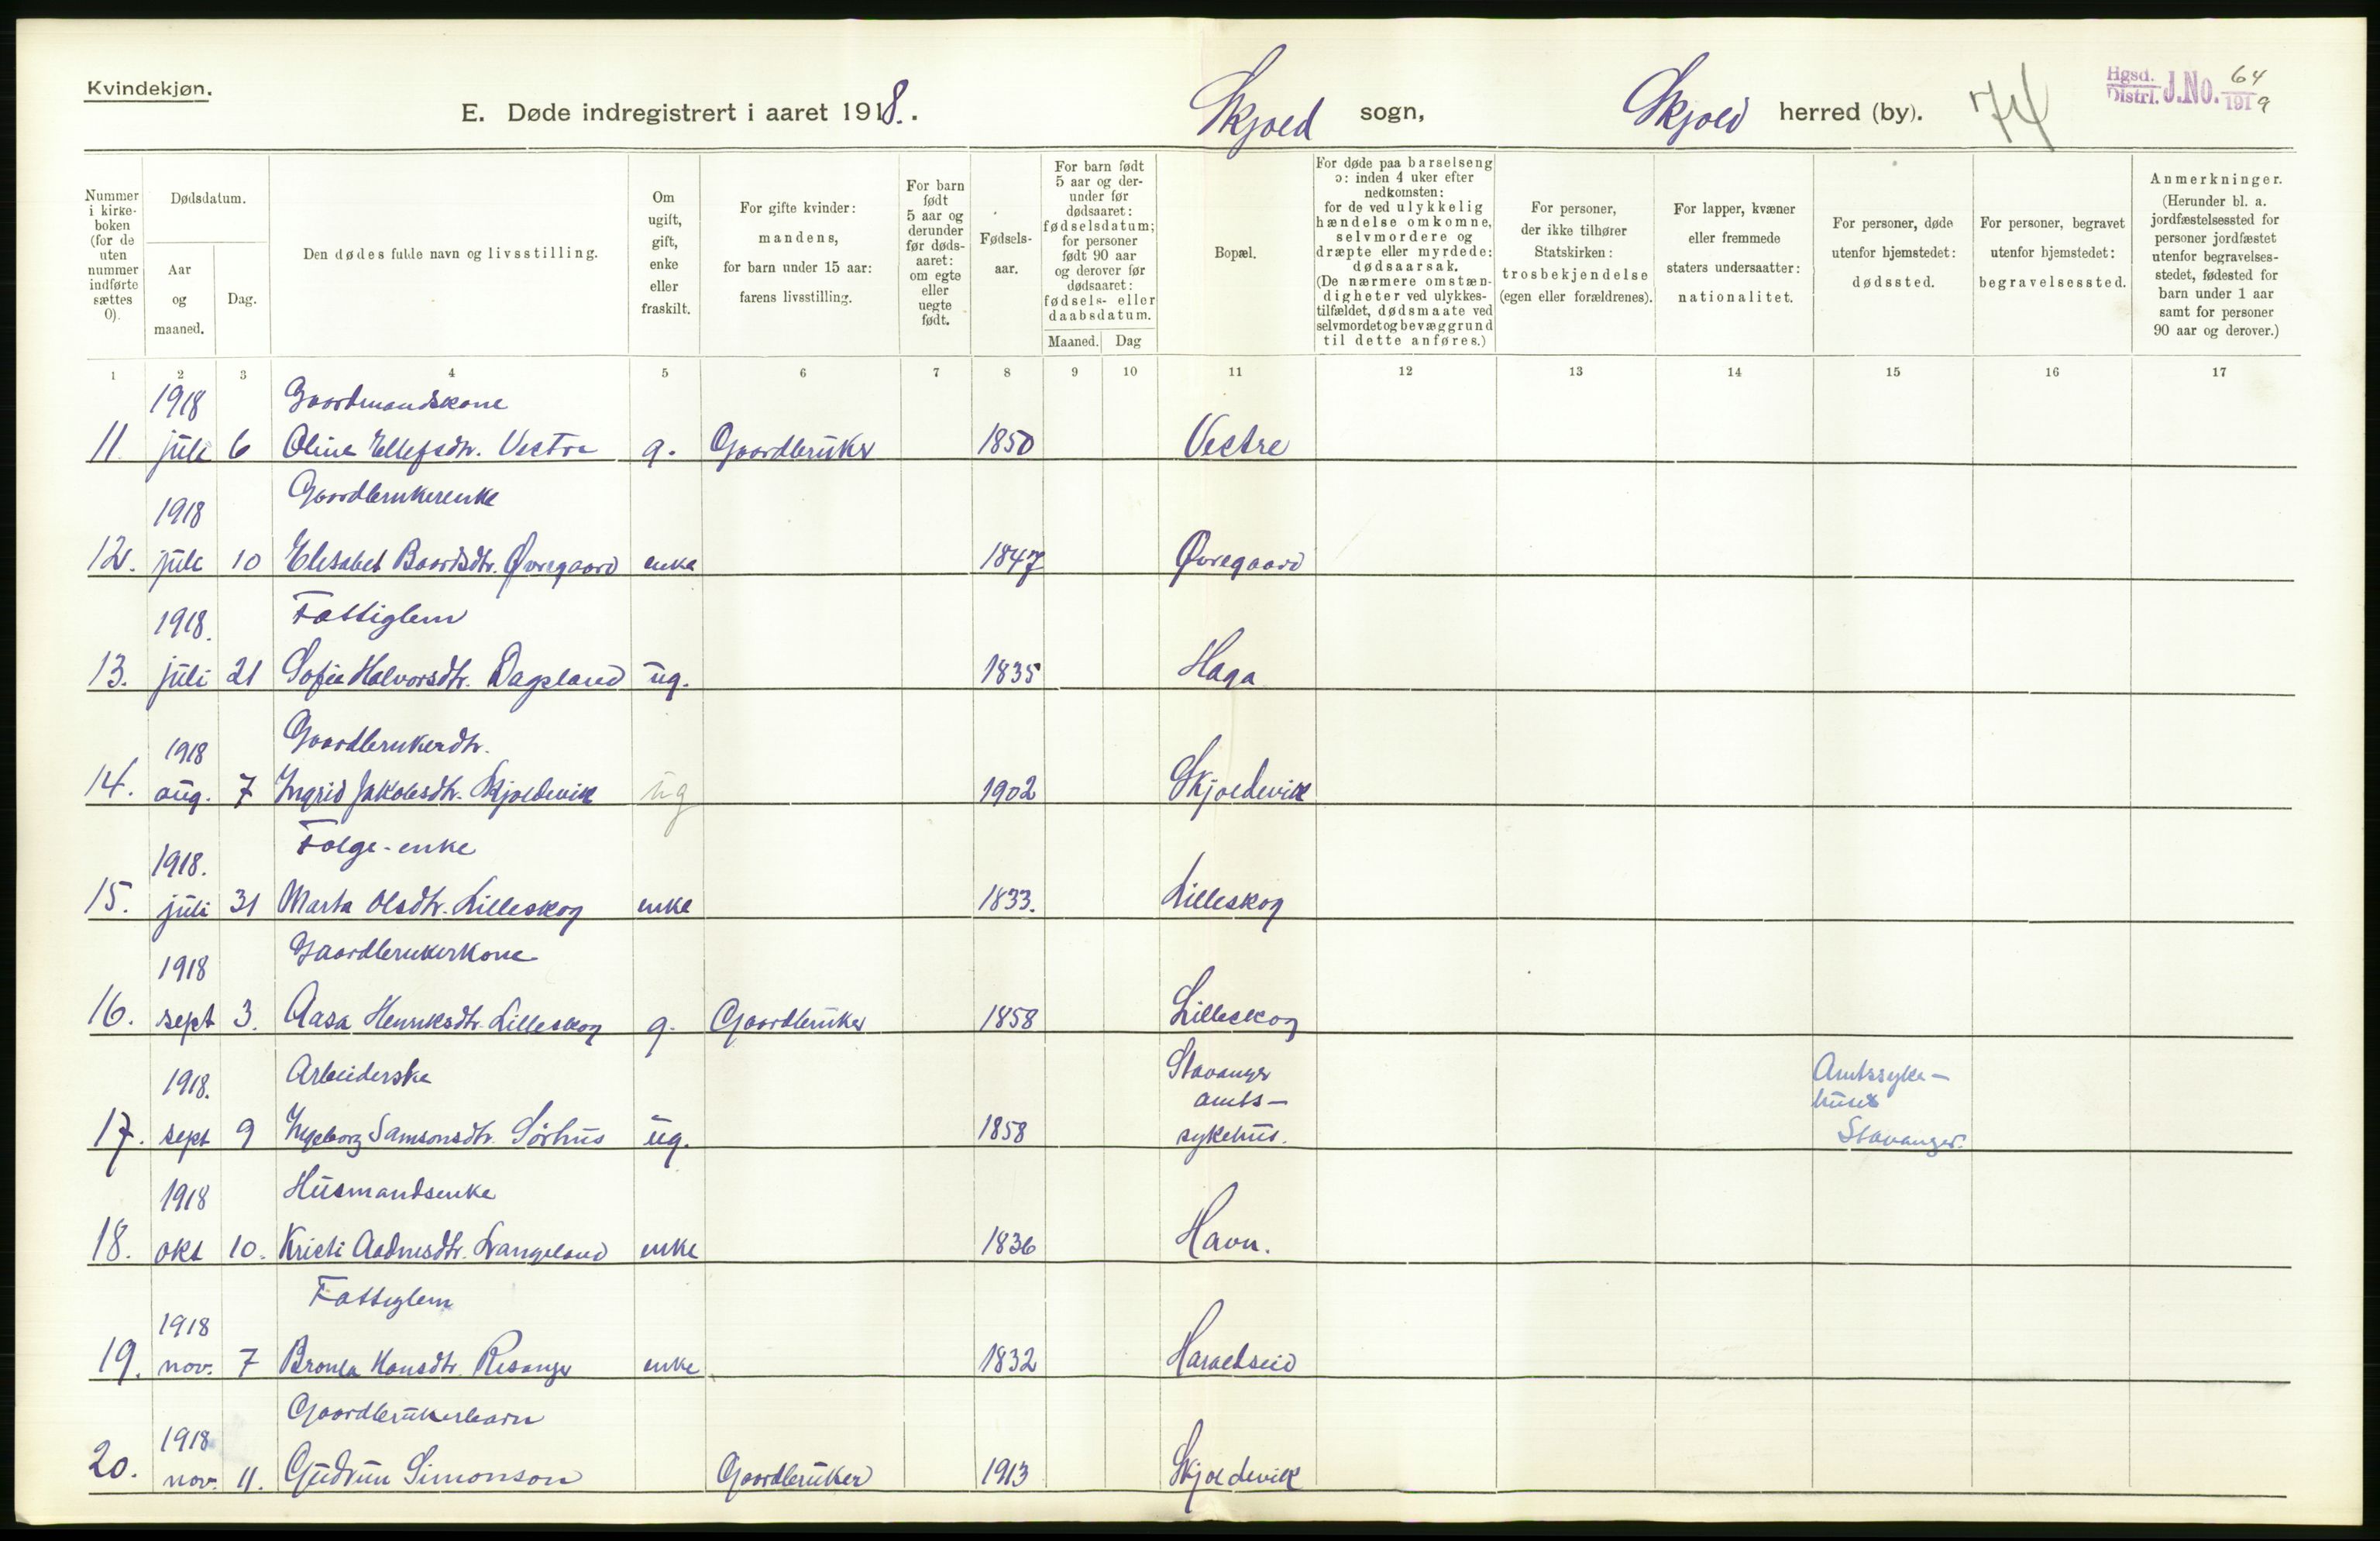 Kvindekjøn.
E. Døde indregistrert i aaret 1918.
Skjold sogn,
Skjold herred (by).
74
Hgsd. Distrl. J.No. 64 1919
Nummer i kirke-boken (for de uten nummer indførte sættes 0).
Dødsdatum.
Aar og maaned.
Dag.
Den dødes fulde navn og livsstilling.
Om ugift, gift, enke eller fraskilt.
For gifte kvinder: mandens, for barn under 15 aar: farens livsstilling.
For barn født 5 aar og derunder før døds-aaret: om egte eller uegte født.
Fødsels-aar.
For barn født 5 aar og der-under før dødsaaret: fødselsdatum; for personer født 90 aar og derover før dødsaaret: fødsels- eller daabsdatum.
Maaned. Dag
Bopæl.
For døde paa barselseng ɔ: inden 4 uker efter nedkomsten: for de ved ulykkelig hændelse omkomne, selvmordere og dræpte eller myrdede: dødsaarsak. (De nærmere omstæn-digheter ved ulykkes-tilfældet, dødsmaate ved selvmord et og bevæggrund til dette anføres.)
For personer, der ikke tilhører Statskirken: trosbekjendelse (egen eller forældrenes).
For lapper, kvæner eller fremmede staters undersaatter: nationalitet.
For personer, døde utenfor hjemstedet: dødssted.
For personer, begravet utenfor hjemstedet: begravelsessted.
Anmerkninger. (Herunder bl. a. jordfæstelsessted for personer jordfæstet utenfor begravelses-stedet, fødested for barn under 1 aar samt for personer 90 aar og derover.)
1 2 3 4 5 6 7 8 9 10 11 12 13 14 15 16 17
1918 Gaardmandskone
11. juli 6 Oline Ellefsdtr. Vestre g. Gaardbruker 1850 Vestre
1918 Gaardbrukerenke
12. juli 10 Elisabet Baardsdtr. Øvregaard enke 1847 Øvregaard
1918. Fattiglem
13. juli 21 Sofie Halvorsdtr. Dagsland ug. 1835 Haga
1918 Gaardbrukerdtr.
14. aug. 7 Ingrid Jakobsdtr. Skjoldevik ug 1902 Skjoldevik
1918. Folge-enke
15. juli 31 Marta Olsdtr. Lilleskog enke 1833. Lilleskog
1918 Gaardbrukerkone
16. sept 3. Aasa Henriksdtr. Lilleskog g. Gaardbruker 1858 Lilleskog
1918. Arbeiderske Stavanger amts- Amtssyke-huset
17. sept 9 Ingeborg Samsonsdtr. Sørhus ug. 1858 sykehus. Stavanger.
1918 Husmandsenke
18. okt 10. Kristi Aadnesdtr. Langeland enke 1836 Havn.
Fattiglem
1918
19. nov. 7 Hansdtr. Risanger enke 1832 Haraldseid
Gaardbrukerbarn
1918
20. nov. 11. Gudrun Simonson Gaardbruker 1913 Skjoldevik